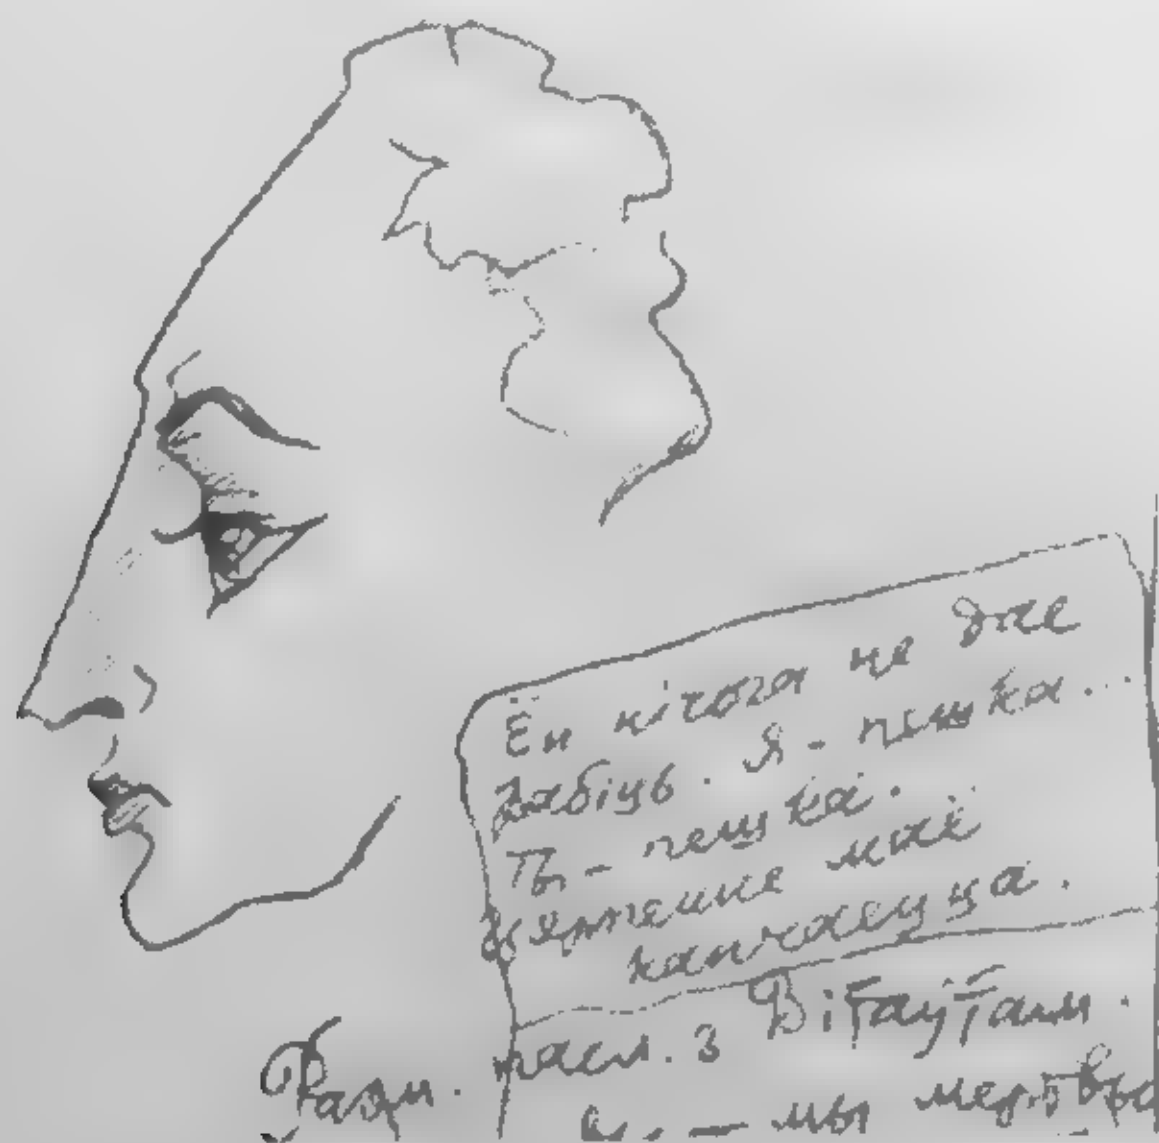 Ён нічога не дае
Забіць. Я - пешка...
Ты - пешка.
Цярпенне маё
канчаецца.
Разм. пасл. з Вітаўтам.
— мы мертвы